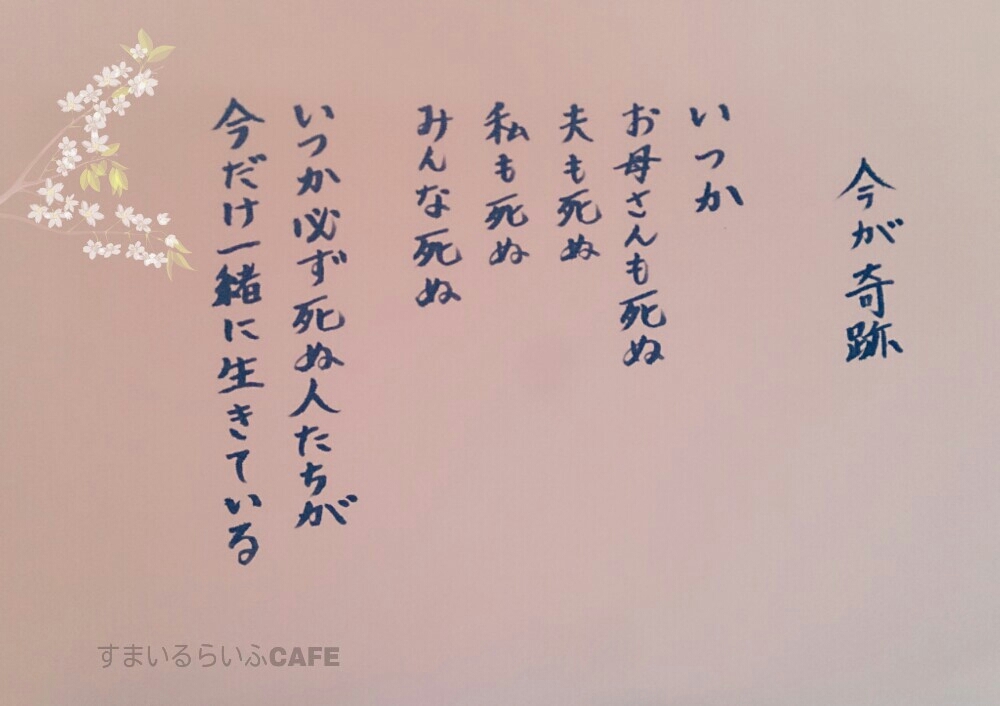 今が奇跡
いつか
お母さんも死ぬ
夫も死ぬ
私も死ぬ
みんな死ぬ
いつか必ず死ぬ人たちが
今だけ一緒に生きている
すまいるらいふCAFE